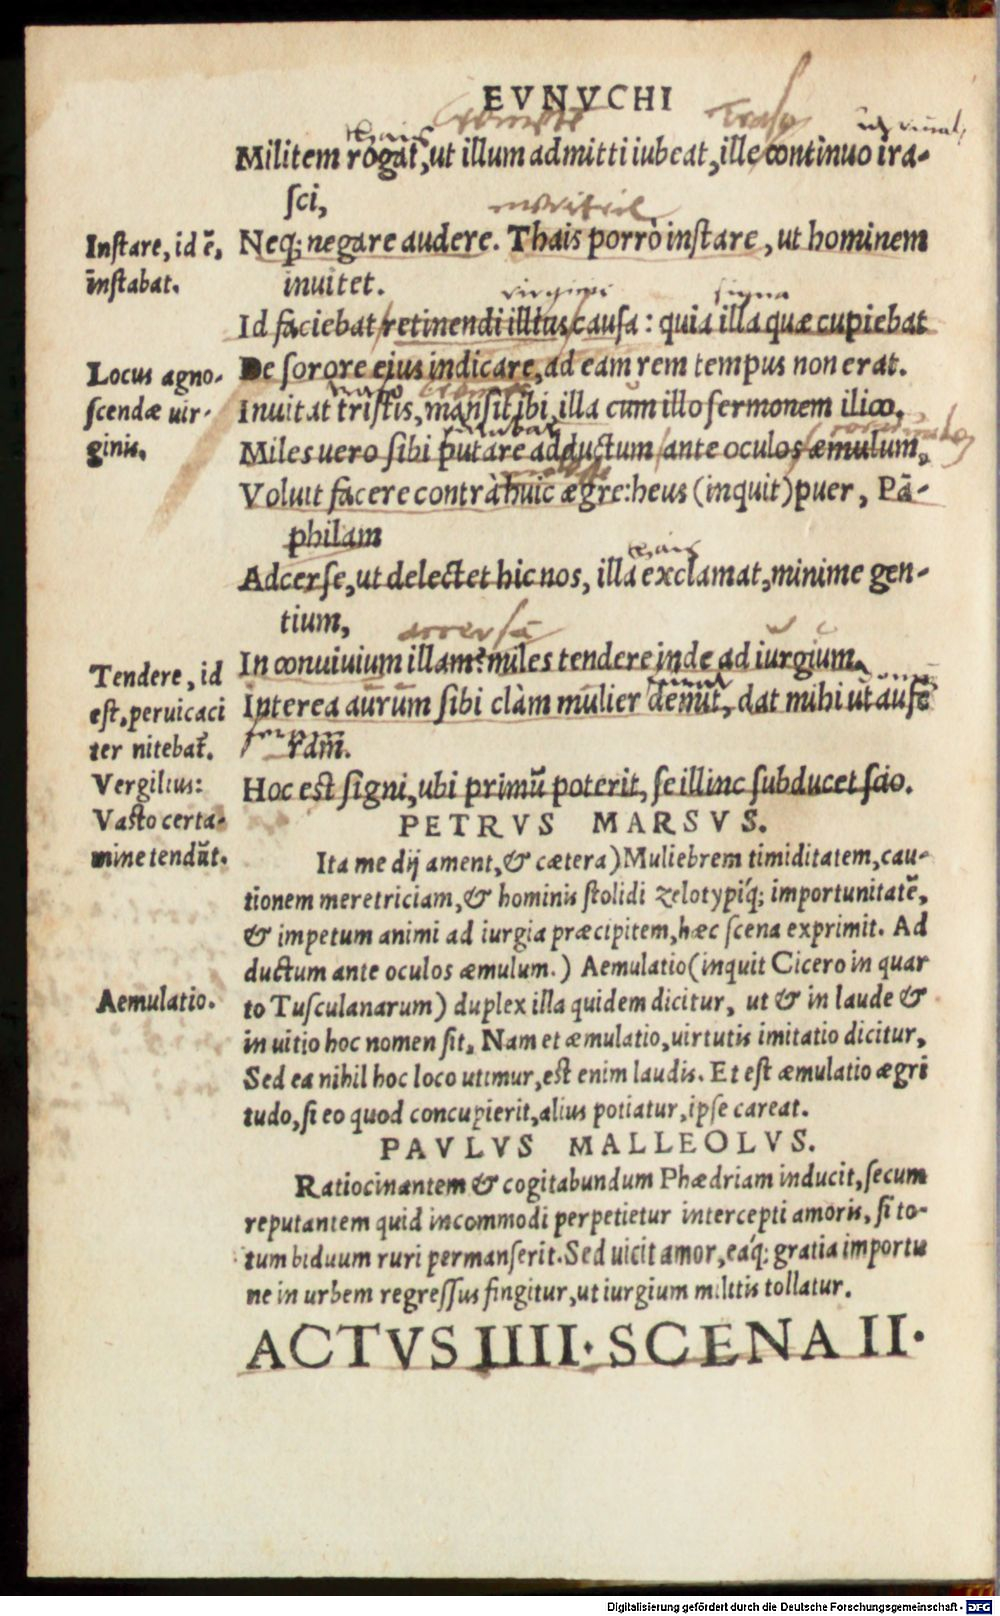 EVNVCHI
Militem rogat, ut illum admitti iubeat, ille continuo ira-
sci,
Neq; negare audere. Thais porrò instare, ut hominem
inuitet.
Id faciebat retinendi illius causa: quia illa quæ cupiebat
De sorore ejus indicare, ad eam rem tempus non erat.
Inuitat tristis, mansit ibi, illa cum illo sermonem ilico.
Miles uero sibi putare adductum ante oculos æmulum,
Voluit facere contrà huic ægre: heus (inquit) puer, Pā-
philam
Adcerse, ut delectet hic nos, illa exclamat, minime gen-
tium,
In conuiuium illam? miles tendere inde ad iurgium.
Interea aurum sibi clàm mulier demit, dat mihi ut aufe
ram.
Hoc est signi, ubi primū poterit, se illinc subducet scio.
Instare, id ē,
instabat.
Locus agno-
scendæ uir-
ginis.
Tendere, id
est, peruicaci
ter nitebat̄.
Vergilius:
Vasto certa-
mine tendūt.
PETRVS MARSVS.
Ita me dij ament, & cætera) Muliebrem timiditatem, cau-
tionem meretriciam, & hominis stolidi zelotypíq; importunitatē,
& impetum animi ad iurgia præcipitem, hæc scena exprimit. Ad
ductum ante oculos æmulum.) Aemulatio (inquit Cicero in quar
to Tusculanarum) duplex illa quidem dicitur, ut & in laude &
in uitio hoc nomen sit. Nam et æmulatio, uirtutis imitatio dicitur,
Sed ea nihil hoc loco utimur, est enim laudis. Et est æmulatio ægri
tudo, si eo quod concupierit, alius potiatur, ipse careat.
Aemulatio.
PAVLVS MALLEOLVS.
Ratiocinantem & cogitabundum Phædriam inducit, secum
reputantem quid incommodi perpetietur intercepti amoris, si to-
tum biduum ruri permanserit. Sed uicit amor, eáq; gratia importu
ne in urbem regressus fingitur, ut iurgium militis tollatur.
ACTVS IIII. SCENA II.
Digitalisierung gefördert durch die Deutsche Forschungsgemeinschaft - DFG